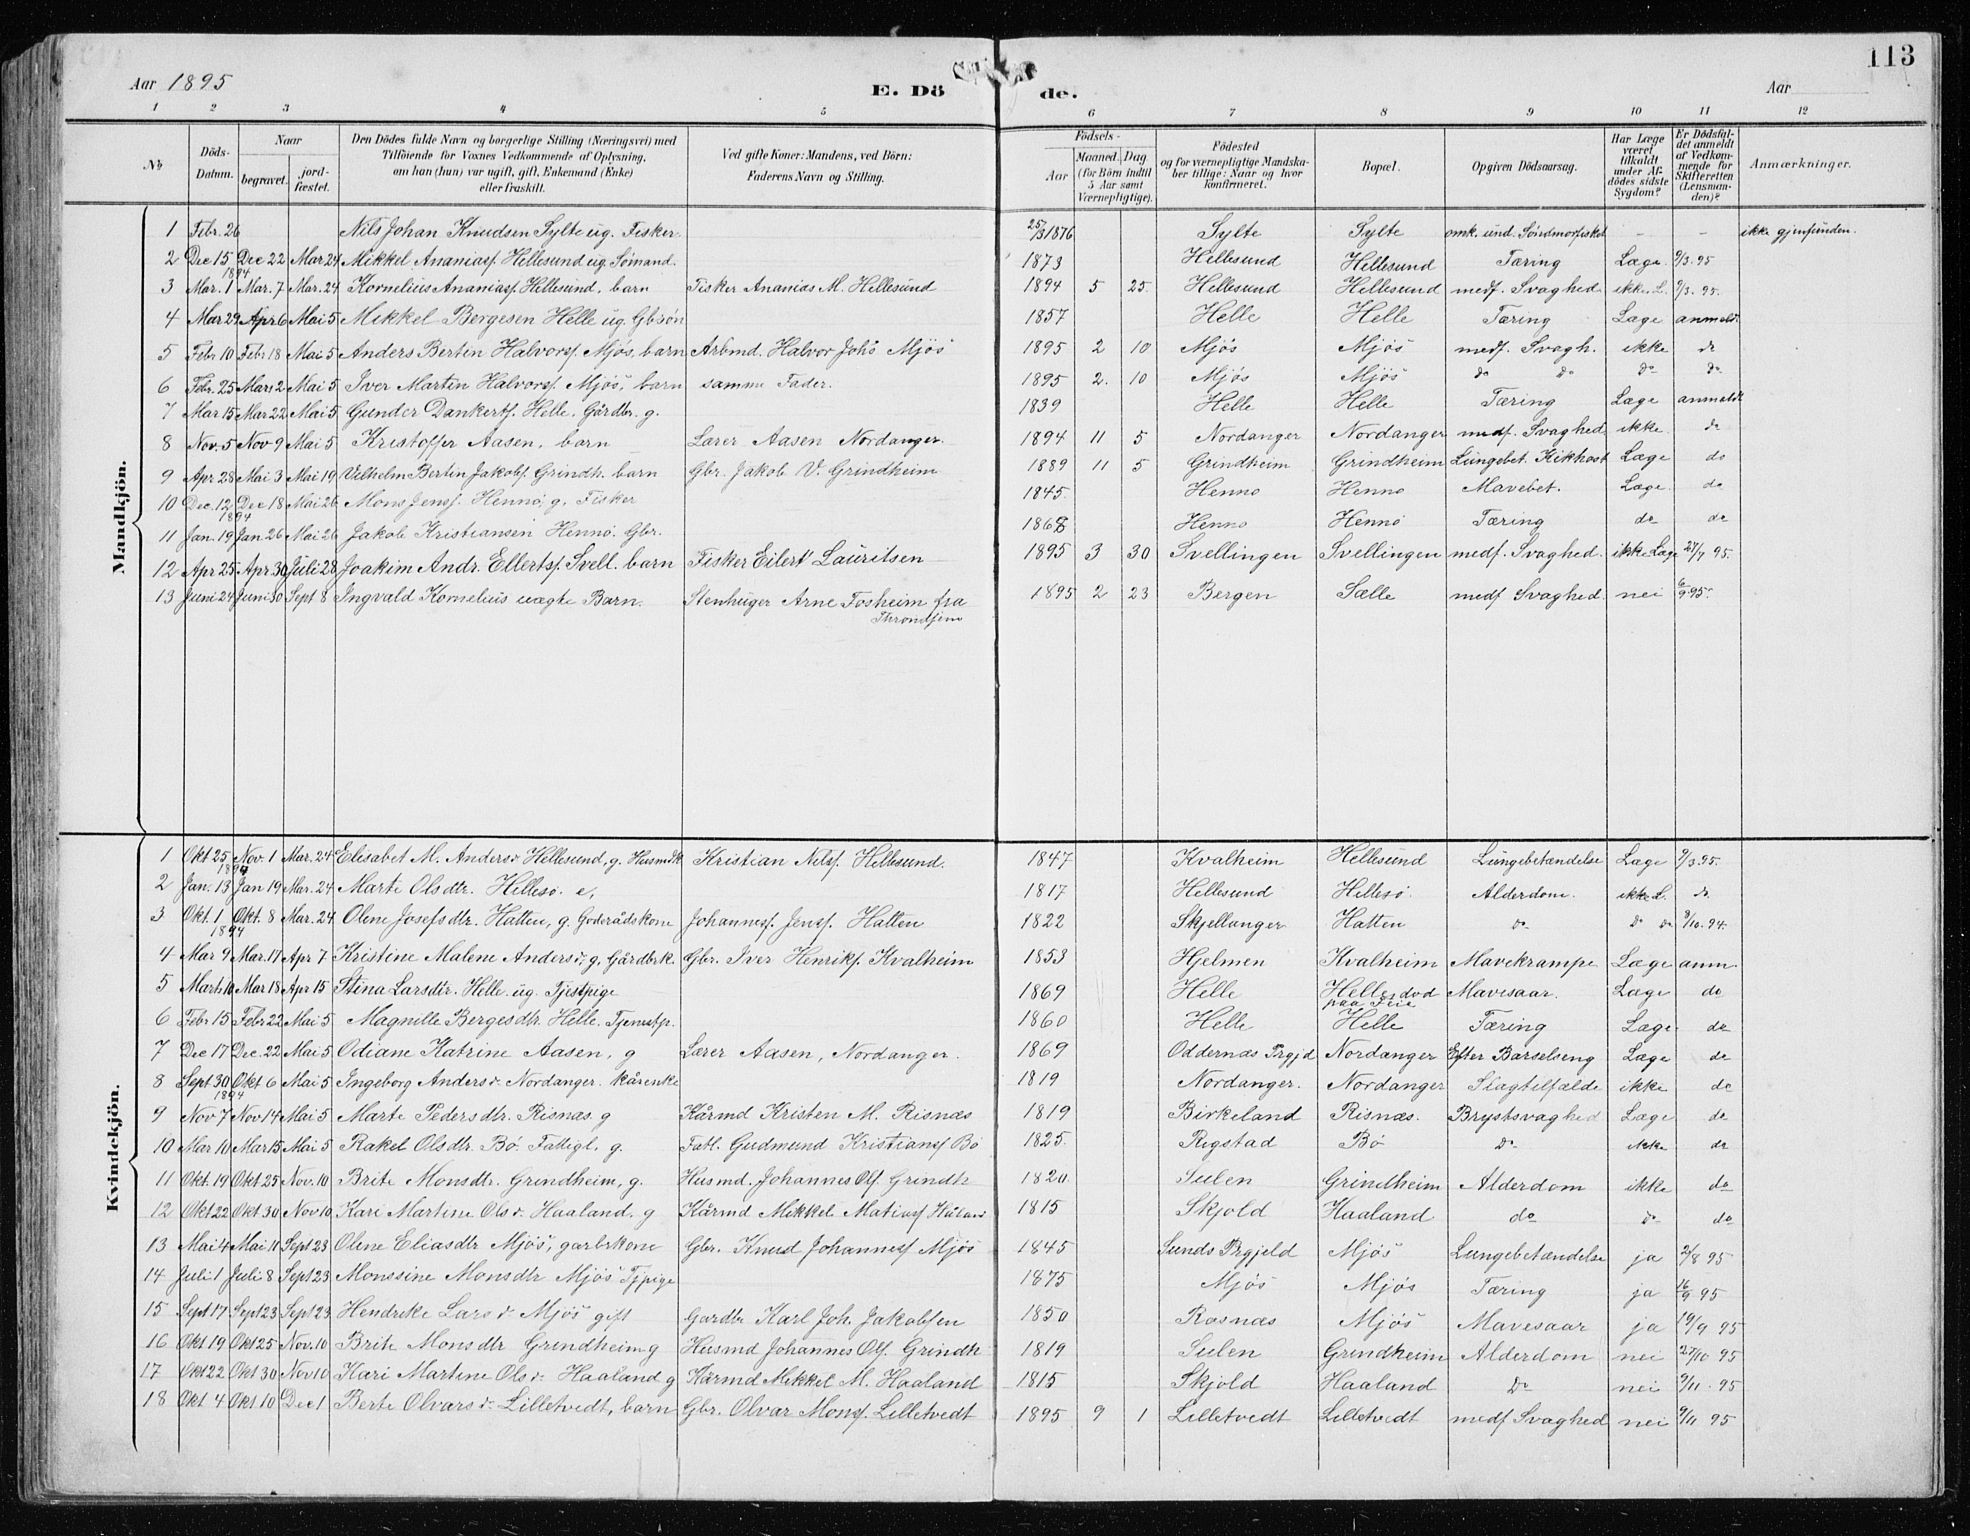 113
Aar 1895
E. Döde.
Aar
1 2 3 4 5 6 7 8 9 10 11 12
No
Döds-Datum.
Naar
begravet.
jord-fæstet.
Den Dödes fulde Navn og borgerlige Stilling (Næringsvei) med Tilföiende for Voxnes Vedkommende af Oplysning, om han (hun) var ugift, gift, Enkemand (Enke) eller fraskilt.
Ved gifte Koner: Mandens, ved Börn: Faderens Navn og Stilling.
Födsels-
Aar
Maaned. Dag (for Börn indtil 5 Aar samt Værnepligtige).
Födested og for værnepligtige Mandskaber tillige: Naar og hvor konfirmeret.
Bopæl.
Opgiven Dödsaarsag.
Har Læge været tilkaldt under Afdödes sidste Sygdom?
Er Dödsfaldet anmeldt af Vedkommende for Skifteretten (Lensmanden)?
Anmærkninger.
Mandkjön.
1 Febr. 26 Nils Johan Knudsen Sylte ug. Fisker 25/3 1876 Sylte Sylte omk. und. Söndmorfisket – – ikke gjenfunden.
2 Dec 15 1894 Dec 22 Mar 24 Mikkel Ananiasf. Hellesund ug. Sömand. 1873 Hellesund Hellesund Tæring Læge 9/3. 95
3 Mar. 1 Mar. 7 Mar. 24 Kornelius Ananiasf. Hellesund, barn Fisker Ananias M. Hellesund 1894 5 25. Hellesund Hellesund medf. Svaghed ikke L. 9/3. 95.
4 Mar 29 Apr 6 Mai 5 Mikkel Bergesen Helle ug. Gbrsön 1857 Helle Helle Tæring Læge anmeldt
5 Febr 10 Febr 18 Mai 5 Anders Bertin Halvorsf. Mjös, barn Arbmd. Halvor Johs Mjös 1895 2 10 Mjös Mjös medf. Svagh. ikke do
6 Febr. 25 Mars 2 Mai 5 Iver Martin Halvorsf. Mjös, barn samme Fader. 1895 2. 10 Mjös Mjös do do do do
7 Mar 15 Mar 22 Mai 5 Gunder Dankertsf. Helle. Gårdbr. g. 1839 Helle Helle Tæring Læge anmeldt
8 Nov. 5 Nov 9 Mai 5 Kristoffer Aasen, barn Lærer Aasen Nordanger. 1894 11 5 Nordanger Nordanger medf. Svaghed ikke do
9 Apr 28 Mai 3 Mai 19 Vilhelm Bertin Jakobsf. Grindh. barn Gbr. Jakob V. Grindheim 1889 11 5 Grindheim Grindheim Lungebet. Kikhost Læge do
10 Dec. 12 1894 Dec 18 Mai 26 Mons Jensf. Hennö, g. Fisker 1845. Henno Henno Mavebet. Læge. do
11 Jan. 19 Jan 26 Mai 26 Jakob Kristiansen Hennö. Gbr. 1868 Henno Hennö Tæring do do
12 Apr 25 Apr 30 Juli 28 Joakim Andr. Ellertsf. Svell. barn Fisker Eilert Lauritsen 1895 3 30 Svellingen Svellingen medf. Svaghed. ikke Læge 27/7 95.
13 Juni 24 Juni 30 Sept 8 Ingvald Kornelius uægte Barn. Stenhuger Arne Fosheim fra Throndjem 1895 2 23 Bergen Sælle medf Svaghed. nei 6/9 95.
Kvindekjön.
1 Okt 25 1894 Nov. 1 Mar. 24 Elisabet M. Andersdr Hellesund, g. Husmdk. Kristian Nilsf. Hellesund. 1847 Kvalheim Hellesund Lungebetændelse Læge 9/3 95.
2 Jan. 13 Jan 19 Mar. 24 Marte Olsdtr. Hellesö. e, 1817 Hellesund Hellesö. Alderdom. ikke L. do
3 Okt. 1 1894 Okt. 8 Mar. 24 Olene Josefsdtr. Hatten, g. Goderådskone Johannesf. Jensf. Hatten 1822 Skjellanger Hatten do do do 8/10. 94.
4 Mar 9 Mar. 17 Apr 7 Kristine Malene Andersdr, g. Gårdbrk. Gbr. Iver Henriksf. Kvalheim 1853 Hjelmen Kvalheim Mavekrampe Læge anm.
5 Marts 10 Mar 18 Apr 15 Stina Larsdtr. Helle. ug. Tjestpige 1869 Helle Helle, död paa Feie Mavesaar. Læge do
6 Febr 15 Febr 22 Mai 5 Magnille Bergesdtr. Helle. Tjenestp. 1860 Helle Helle Tæring Læge do
7 Dec 17 Dec. 22 Mai 5 Odiane Katrine Aasen, g Lærer Aasen, Nordanger. 1869 Oddernæs Prgjd Nordanger Efter Barselseng Læge do
8 Sept 30 1894 Okt 6 Mai 5 Ingeborg Andersdr. Nordanger. kårenke 1819 Nordanger. Nordanger Slagtilfælde ikke do
9 Nov 7 Nov 14 Mai 5 Marte Pedersdtr. Risnæs. g Kårmd Kristen M. Risnæs 1819 Birkeland Risnæs. Brystsvaghed Læge do
10 Mar 10 Mar 15 Mai 5 Rakel Olsdtr. Bö. Fattigl. g. Fatl. Gudmund Kristiansf Bö 1825. Rigstad Bö do ikke do
11 Okt. 19 Okt 25 Nov. 10 Brite Monsdtr. Grindheim, g. Husmd. Johannes Olf. Grindh 1820 Sulen Grindheim Alderdom ikke do
12 Okt 22 Okt 30 Nov 10 Kari Martine Olsdr. Haaland. g Kårmd Mikkel Matiasf Håland 1815 Skjold Haaland do do do
13 Mai 4 Mai 11 Sept 23 Olene Eliasdtr Mjös, garbrkone Gbr. Knud Johannesf Mjös 1845 Sunds Prgjeld Mjös Lungebetændelse ja 2/8 95
14 Juli 1 Juli 8 Sept 23 Monssine Monsdtr Mjös Tjpige 1875 Mjös Mjös Tæring ja 16/9 95
15 Sept 17 Sept 23 Sept 23 Hendrike Larsdr Mjös gift Gardbr Karl Joh. Jakobsen 1850 Rosnæs Mjös Mavesaar ja 19/9 95
16 Okt 19 Okt 25 Nov. 10 Brite Monsdtr Grendheim g Husmd Johannes Olf. Grindh 1819 Sulen Grendheim Alderdom nei 27/10 95
17 Okt 22 Okt 30 Nov 10 Kari Martine Olsdr. Haaland g Kårmd Mikkel M. Haaland 1815 Skjold Haaland Do nei 9/11. 95
18 Okt 4 Okt 10 Dec 1 Berte Olvarsdr Lilletvedt, barn Gbr. Olvar Monsf. Lilletvedt 1895 9 1 Lilletvedt Lilletvedt medf Svaghed nei 9/11 95